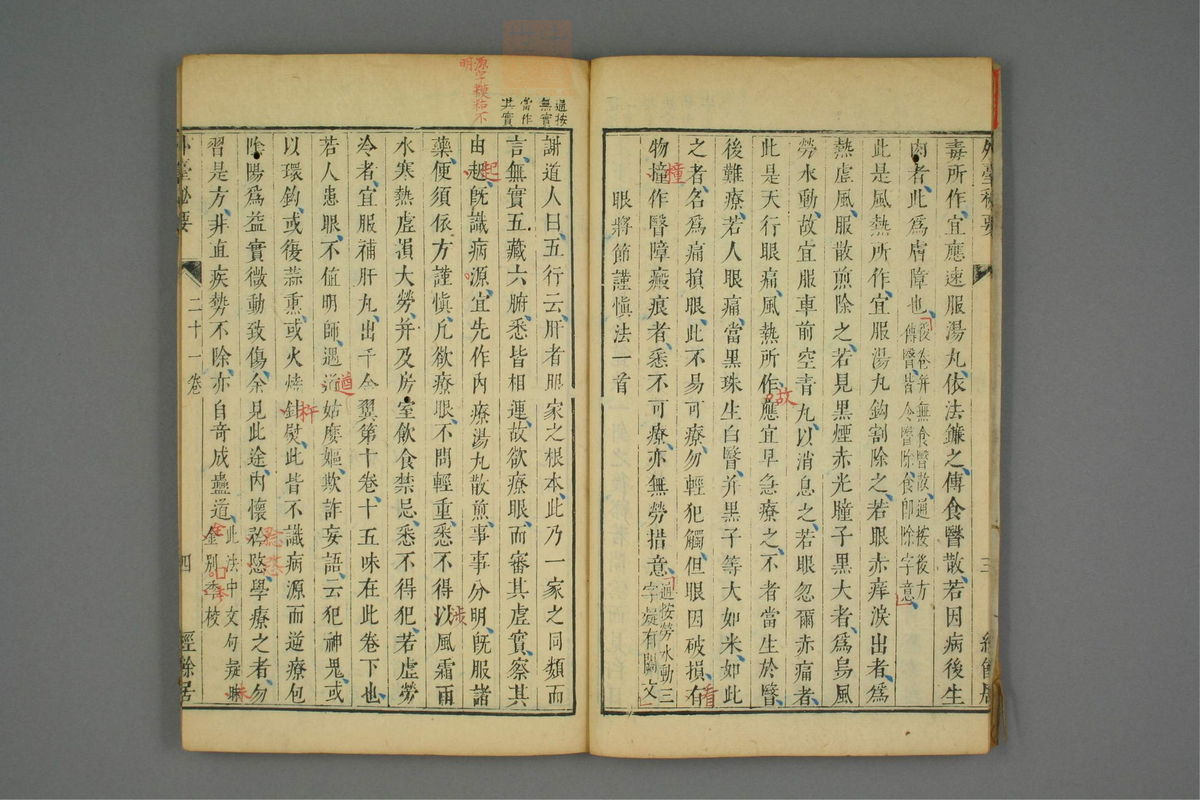 外臺秘要
毒所作宜應速服湯丸依法鐮之傳食瞖散若因病後生
肉者此爲膚障也後卷幷無食瞖散通按後方
傳瞖皆令瞖除食卽除字意
此是風熱所作宜服湯丸鈎割除之若眼赤痒淚出者爲
熱虛風服散煎除之若見黑煙赤光瞳子黑大者爲烏風
勞水動故宜服車前空青丸以消息之若眼忽爾赤痛者
此是天行眼痛風熱所作應宜早急療之不者當生於瞖
故
後難療若人眼痛當黑珠生白瞖幷黑子等大如米如此
之者名爲痛損眼此不易可療勿輕犯觸但眼因破損有
看
物撞作瞖障瘢痕者悉不可療亦無勞措意通按勞水動三
字疑有闕文
撞
眼將節謹愼法一首
三
經餘居
通按
無實
當作
其實
源字模糊不
明
謝道人曰五行云肝者眼家之根本此乃一家之同類而
言無實五藏六腑悉皆相連故欲療眼而審其虛實察其
由起旣識病源宜先作內療湯丸散煎事事分明旣服諸
起
藥便須依方謹愼凡欲療眼不問輕重悉不得以風霜雨
涉
水寒熱虛損大勞幷及房室飮食禁忌悉不得犯若虛勞
冷者宜服補肝丸出千金翼第十卷十五味在此卷下也
若人患眼不値明師遇道姑麼嫗欺詐妄語云犯神鬼或
遒
以環鈎或復蒜熏或火燒針熨此皆不識病源而道療包
除陽爲益實微動致傷余見此途內懷愍學療之者勿
習是方非直疾勢不除亦自奇成蠱道此法中文句疑
金別本校
外臺秘要
二十一卷
四
經餘居